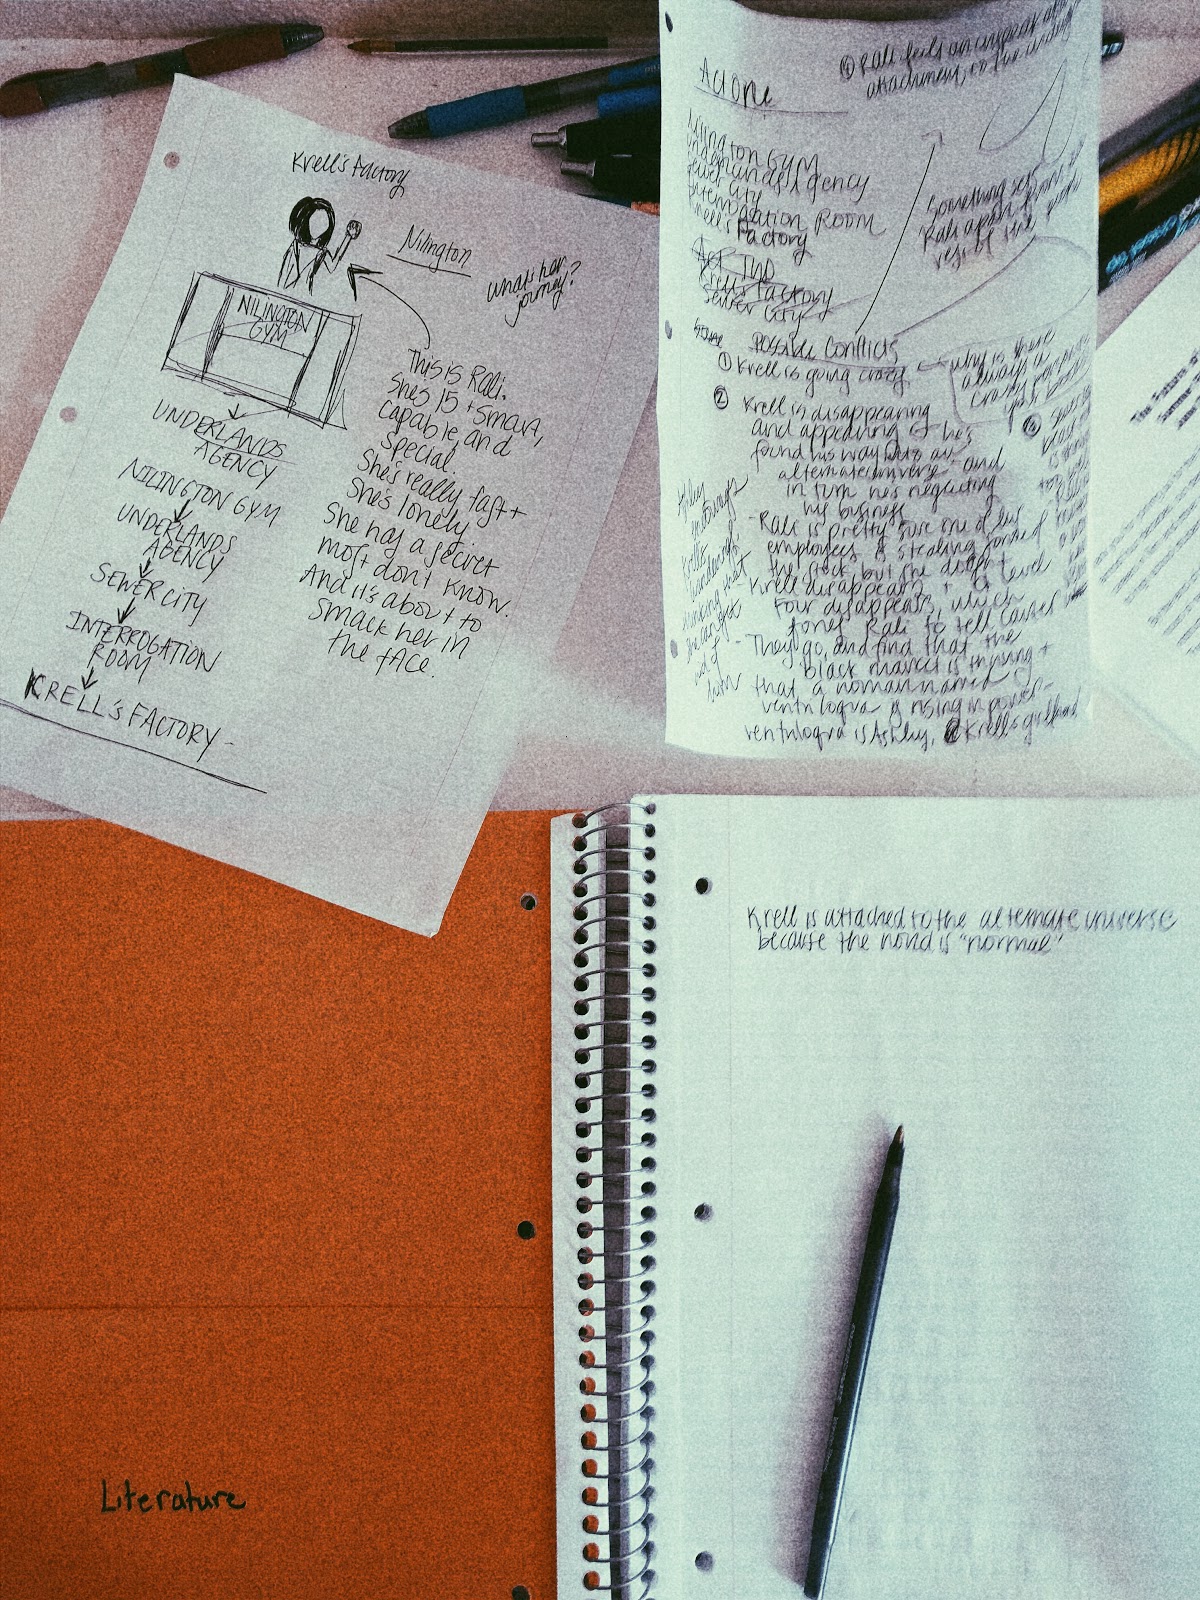 Krell's Factory
Nilington
what's her
journey?
NILINGTON
GYM
UNDERLANDS
AGENCY
NILINGTON GYM
UNDERLANDS
AGENCY
SEWER CITY
INTERROGATION
ROOM
KRELL'S FACTORY
This is Rali.
She's 15 + smart,
capable, and
special.
She's really fast +
She's lonely
She has a secret
most don't know.
And it's about to
smack her in
the face.
Act One
④ Rali feels an
attachment, so
Nilington GYM
Underlands Agency
Sewer City
Interrogation Room
Krell's Factory
Act Two
Krell's Factory
Sewer City
Something sets
Rali apart from
rest of the
Possible Conflicts
① Krell is going crazy
why is there
always a
crazy person in
your
② Krell is disappearing
and appearing - he's
found his way into an
alternate universe and
in turn he's neglecting
his business
- Rali is pretty sure one of his
employees is stealing some of
the stock, but she doesn't
- Krell disappears + a level
four disappears, which
forces Rali to tell
- They go, and find that the
black market is thriving +
that a woman named
ventriloqua is rising in power-
ventriloqua is Ashley, Krell's girlfriend
③
Krell is attached to the alternate universe
because the world is "normal"
Literature